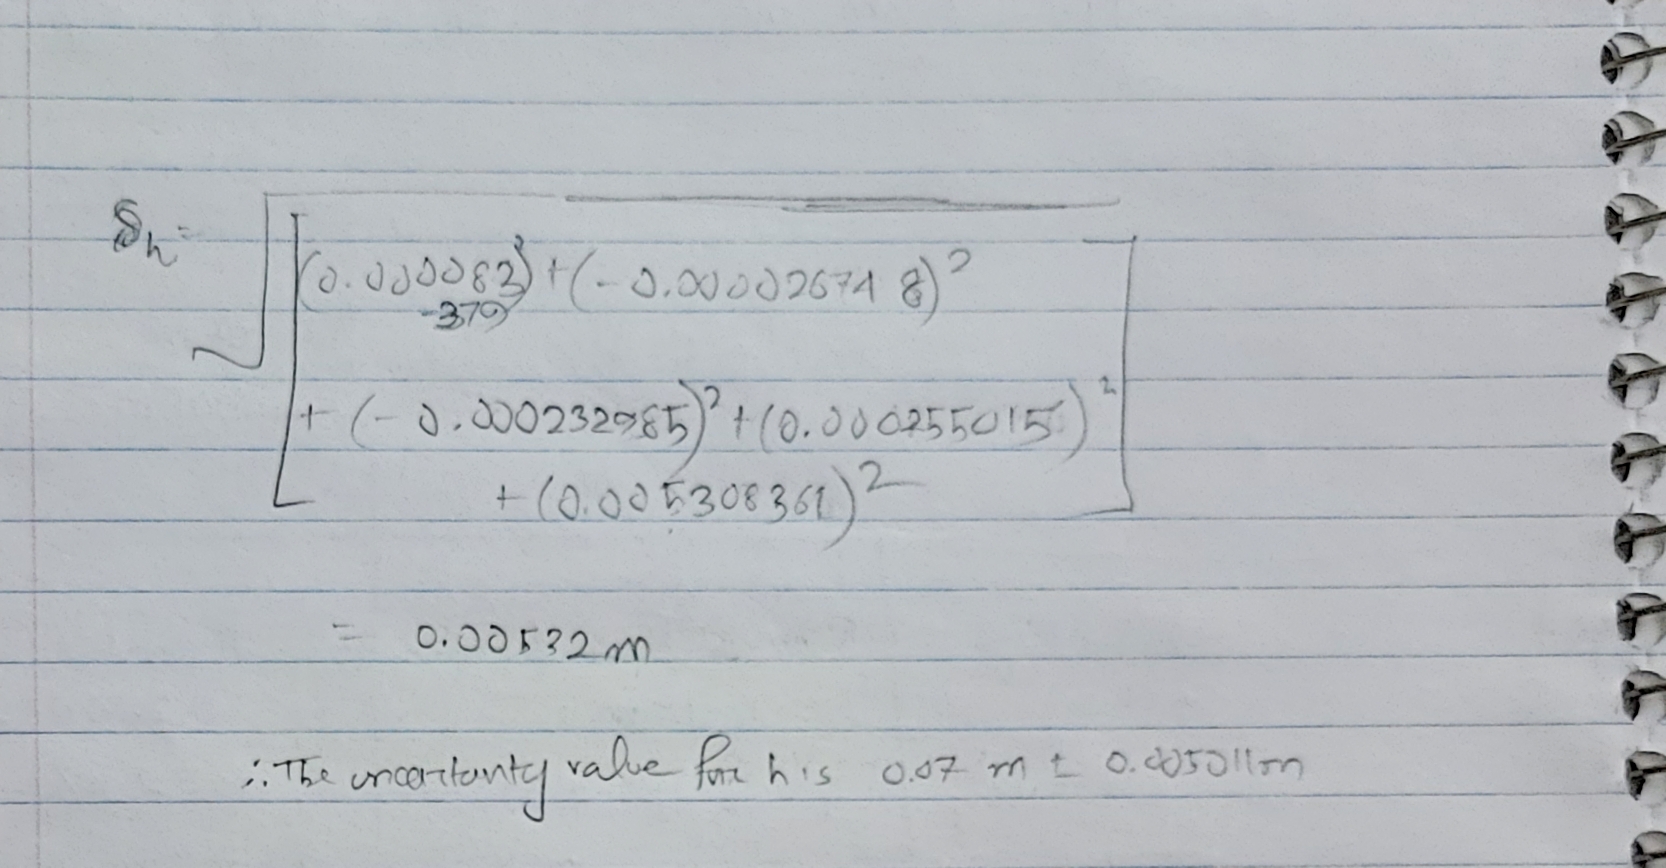 δh = √[(0.000083)² + (-0.000026748)²
-379
+ (-0.000232985)² + (0.000255015)²
+ (0.005308361)²]
= 0.00532 m
∴ The uncertanty value for h is 0.07 m ± 0.005011m